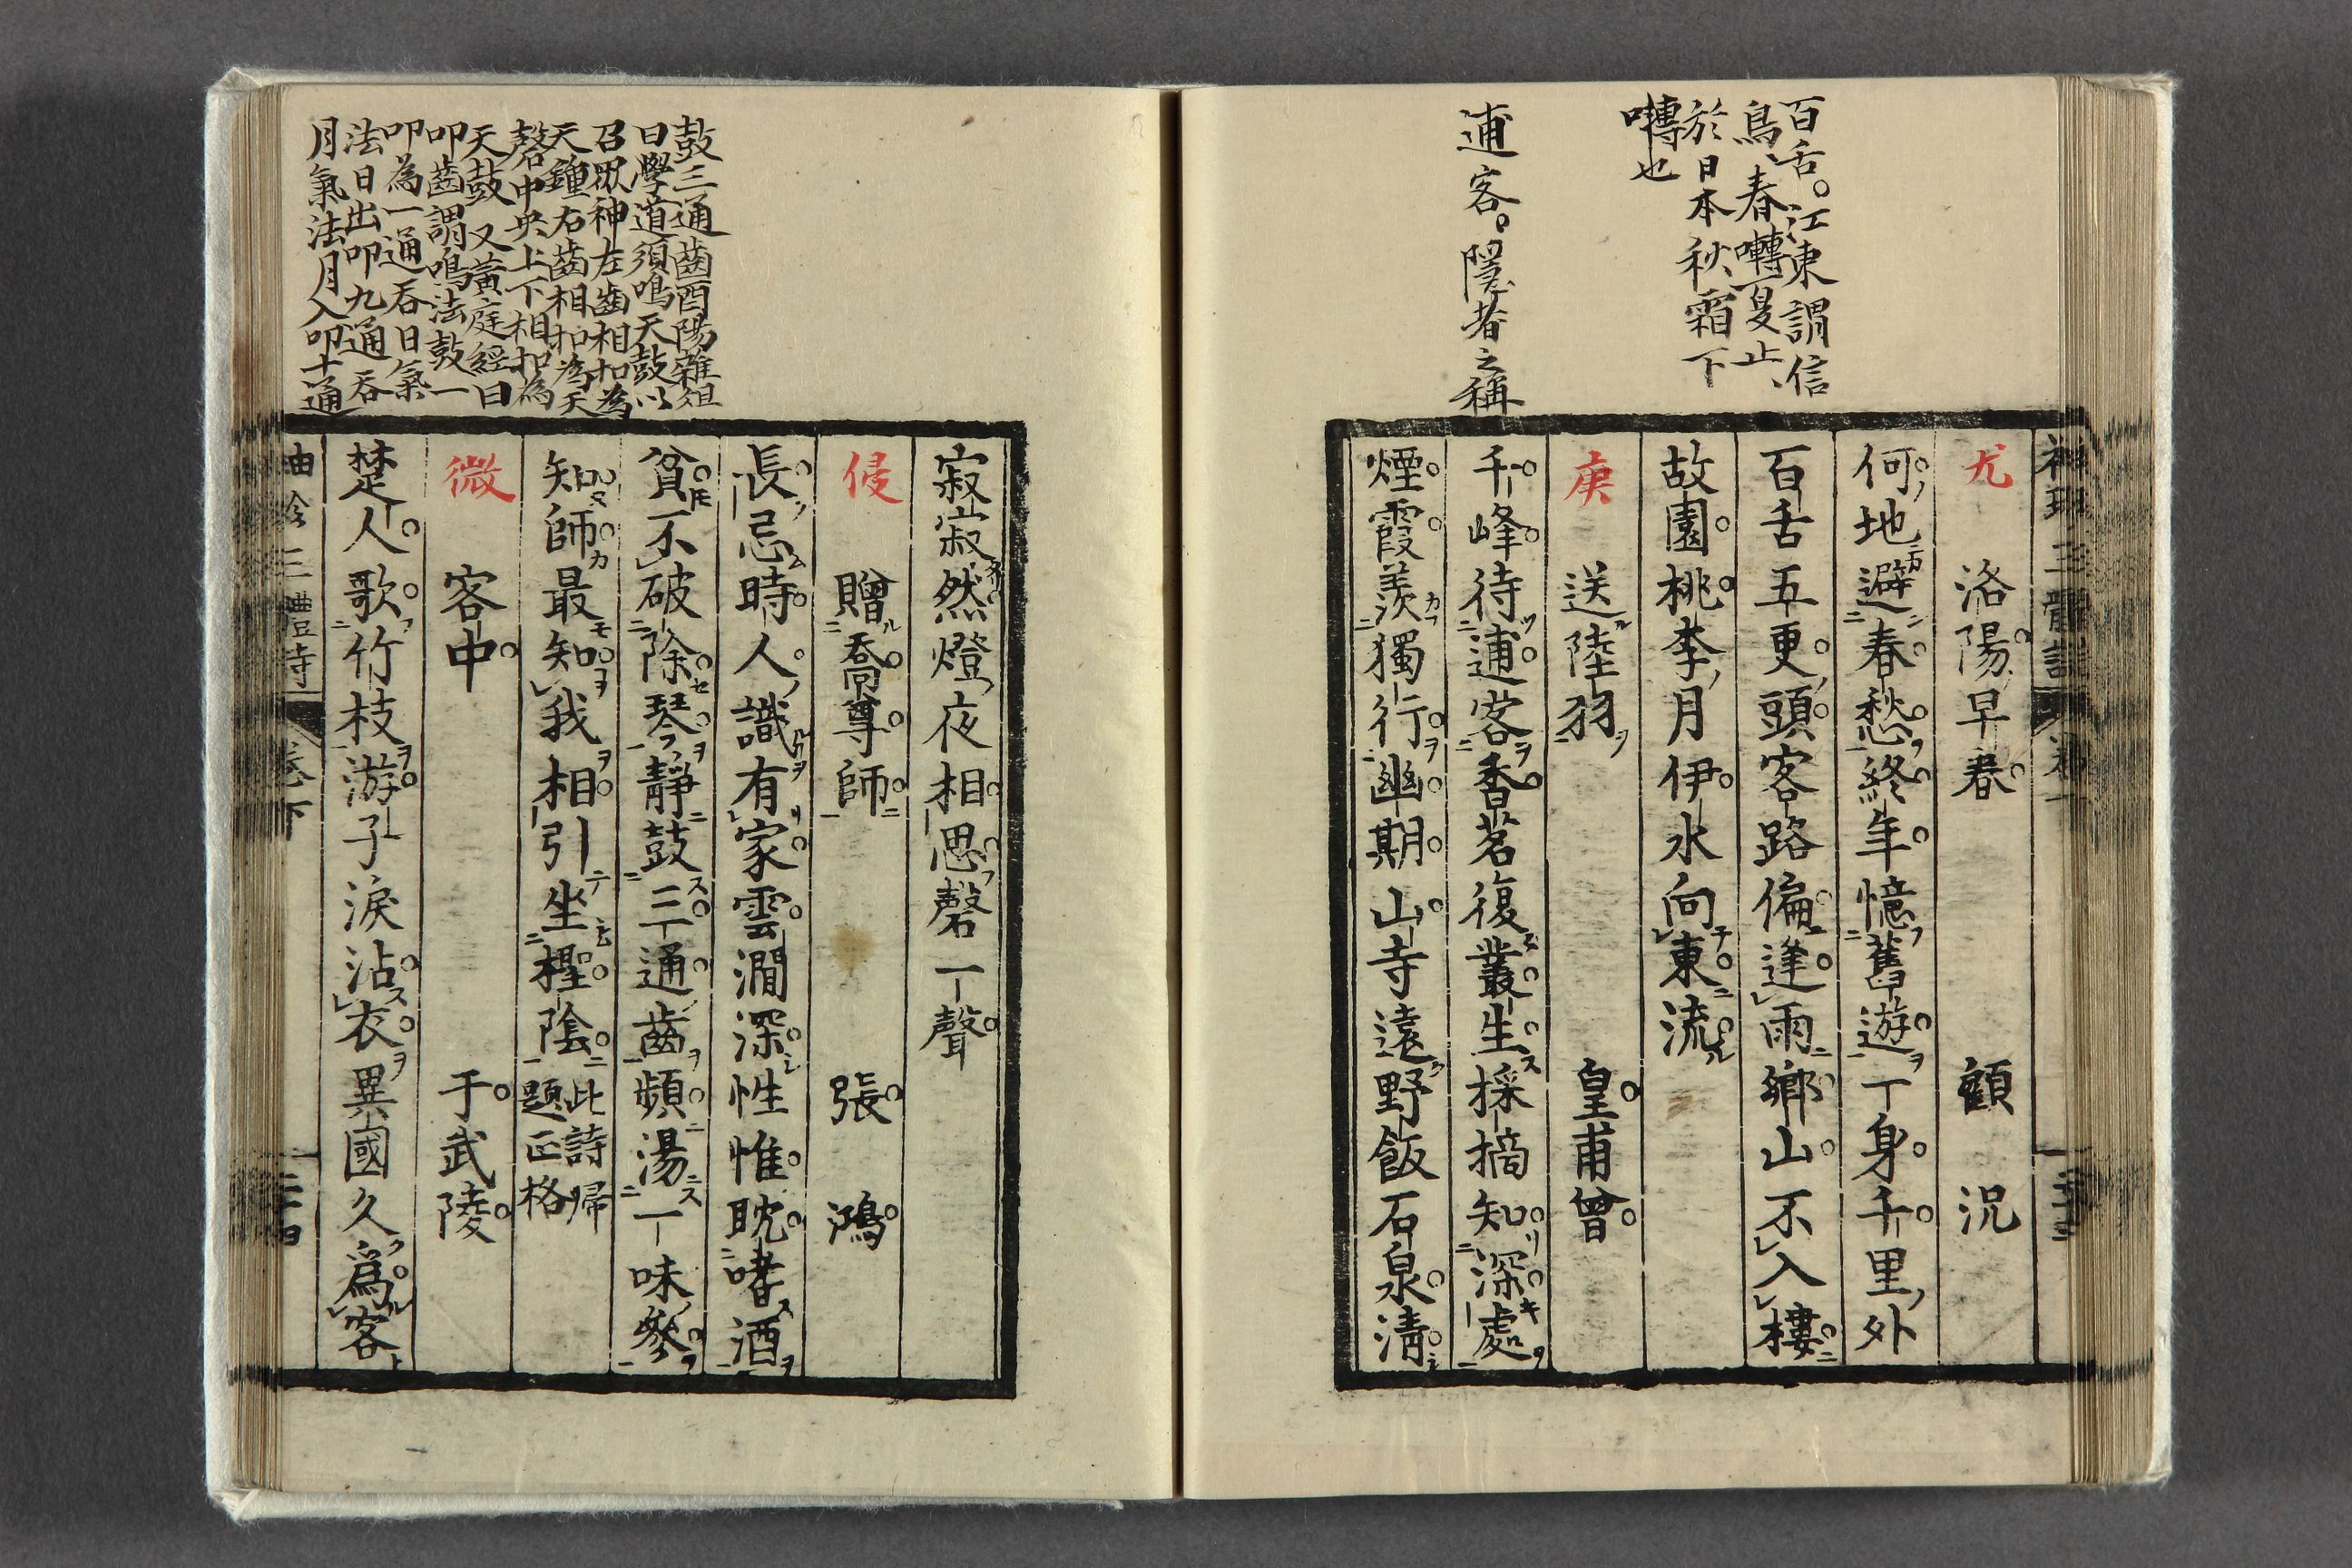 百舌。江東謂信
鳥、春囀夏止、
於日本秋霜下
囀也
逋客。隱者之稱
尤　洛陽早春　顧況
何地避春愁終年憶舊遊一身千里外
百舌五更頭客路偏逢雨鄉山不入樓
故園桃李月伊水向東流
庚　送陸羽　皇甫曾
千峰待逋客香茗復叢生採摘知深處
煙霞羨獨行幽期山寺遠野飯石泉清
鼓三通齒酉陽雜俎
曰學道須鳴天鼓以
召眾神左齒相扣為
天鐘右齒相扣為天
磬中央上下相扣為
天鼓又黃庭經曰
叩齒謂鳴法鼓一
叩為一通吞日氣
法日出叩九通吞
月氣法月入叩十通
寂寂然燈夜相思磬一聲
侵　贈喬尊師　張鴻
長忌時人識有家雲澗深性惟耽嗜酒
貧不破除琴靜鼓三通齒頻湯一味參
知師最知我相引坐檉陰此詩歸題正格
微　客中　于武陵
楚人歌竹枝游子淚沾衣異國久爲客
卷下